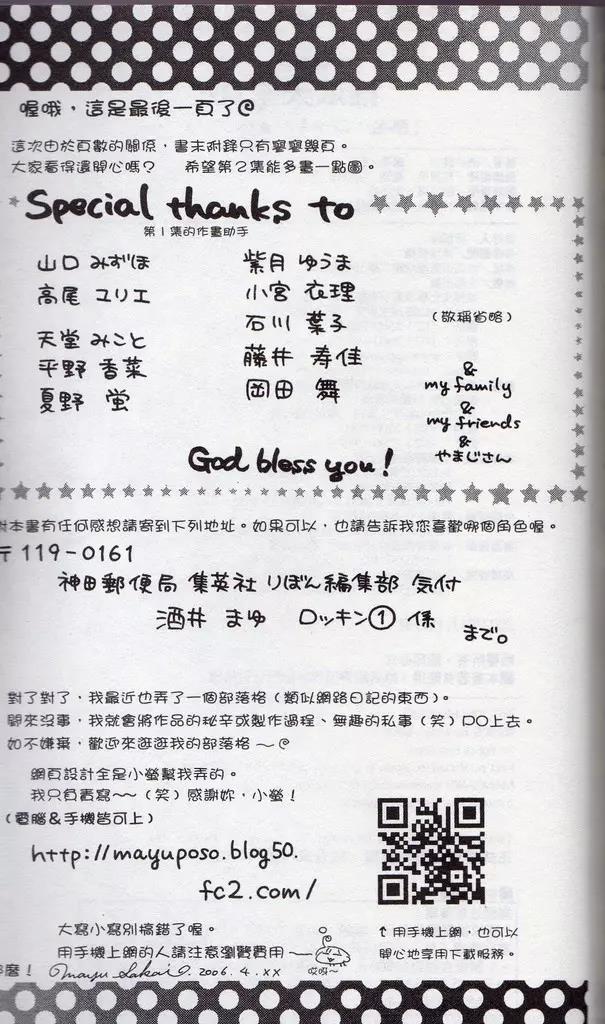 喔哦，這是最後一頁了@
這次由於頁數的關係，書末附錄只有寥寥幾頁。
大家看得還開心嗎？ 希望第2集能多畫一點圖。
Special thanks to
第1集的作畫助手
山口 みずほ
高尾 ユリエ
天堂 みこと
平野 香菜
夏野 蛍
紫月 ゆうま
小宮 衣理
石川 葉子
藤井 寿佳
岡田 舞
(敬稱省略)
&
my family
&
my friends
&
やまじさん
God bless you!
對本書有任何感想請寄到下列地址。如果可以，也請告訴我您喜歡哪個角色喔。
〒119-0161
神田郵便局 集英社 りぼん編集部 気付
酒井 まゆ ロッキン① 係
まで。
對了對了，我最近也弄了一個部落格(類似網路日記的東西)。
閒來沒事，我就會將作品的秘辛或製作過程、無趣的私事(笑)PO上去。
如不嫌棄，歡迎來逛逛我的部落格～@
網頁設計全是小螢幫我弄的。
我只負責寫～～(笑)感謝妳，小螢！
(電腦&手機皆可上)
http://mayuposo.blog50.
fc2.com/
大寫小寫別搞錯了喔。
用手機上網的人請注意瀏覽費用～
哎呀～
↑用手機上網，也可以
開心地享用下載服務。
麼！ Mayu Sakai. 2006.4.XX